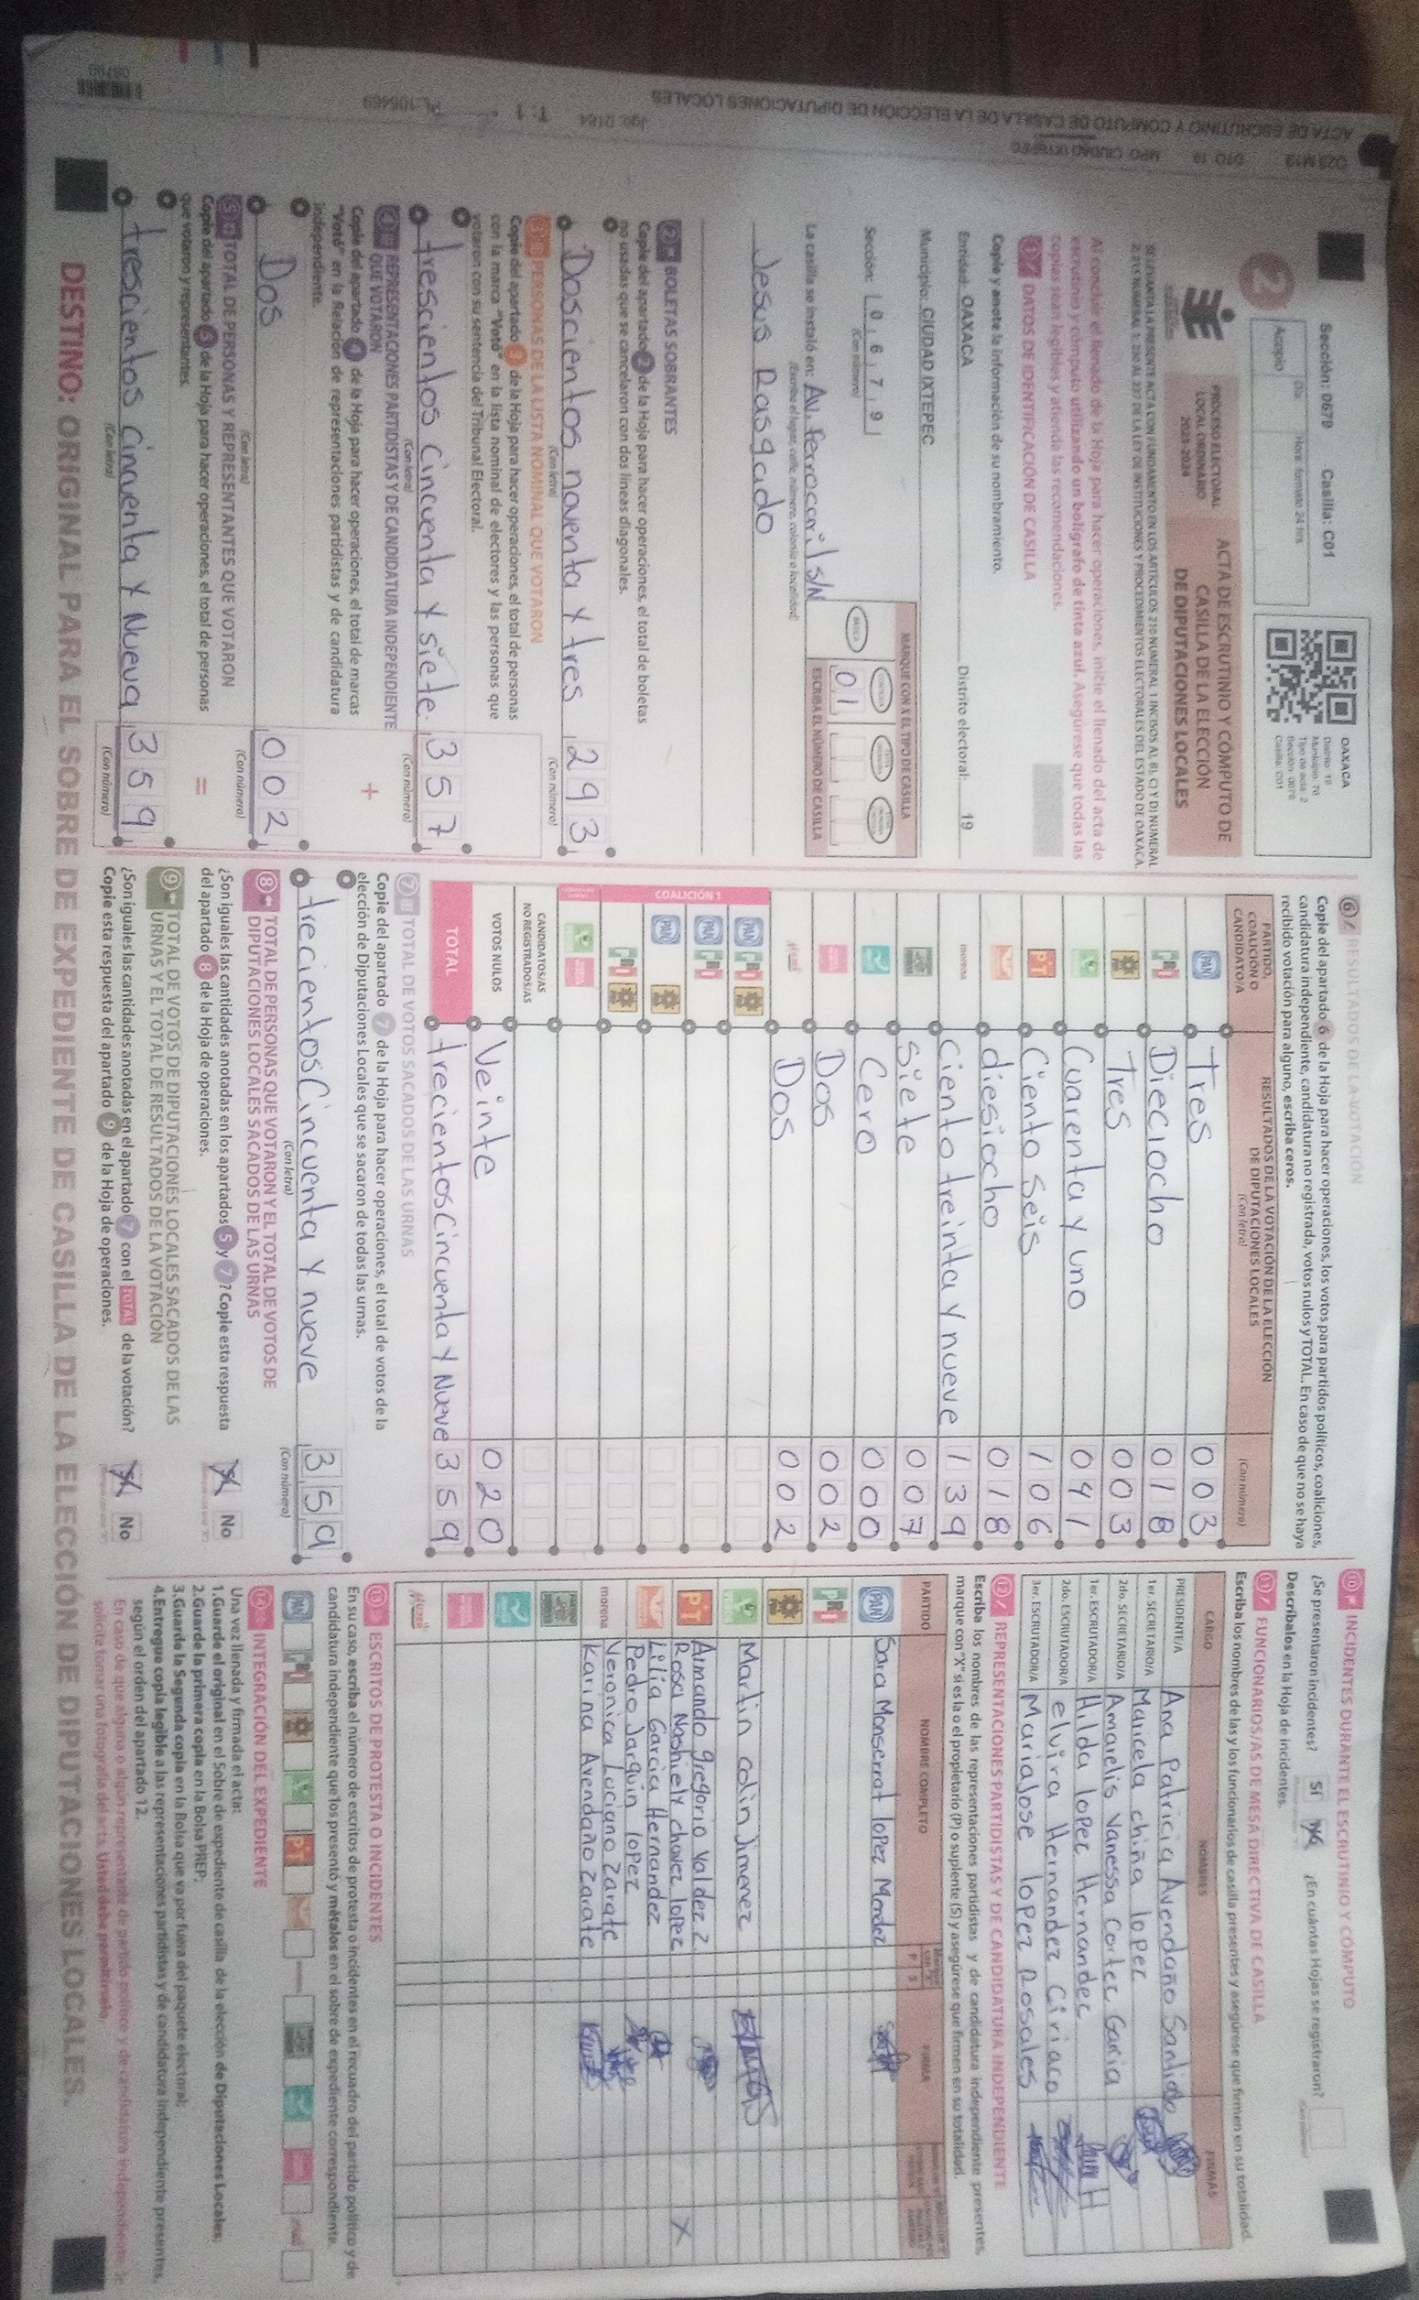 Sección: 0679 Casilla: C01
OAXACA
Distrito: 19
Municipio: 70
Tipo de acta: 2
Sección: 0679
Casilla: C01
2
Acopio
Día:
Hora: formato 24 hrs.
PROCESO ELECTORAL
LOCAL ORDINARIO
2023-2024
ACTA DE ESCRUTINIO Y CÓMPUTO DE
CASILLA DE LA ELECCIÓN
DE DIPUTACIONES LOCALES
Al concluir el llenado de la Hoja para hacer operaciones, inicie el llenado del acta de
escrutinio y cómputo utilizando un bolígrafo de tinta azul. Asegúrese que todas las
copias sean legibles y atienda las recomendaciones.
1 DATOS DE IDENTIFICACIÓN DE CASILLA
Copie y anote la información de su nombramiento.
Entidad: OAXACA Distrito electoral: 19
Municipio: CIUDAD IXTEPEC
Sección: 0 6 7 9
(Con número)
MARQUE CON X EL TIPO DE CASILLA
ESCRIBA EL NÚMERO DE CASILLA
01
La casilla se instaló en: Av. ferrocarril S/N
(Escriba el lugar, calle, número, colonia o localidad)
Jesus Rasgado
2 BOLETAS SOBRANTES
Copie del apartado 2 de la Hoja para hacer operaciones, el total de boletas
no usadas que se cancelaron con dos líneas diagonales.
Doscientos noventa y tres 293
(Con letra) (Con número)
3 PERSONAS DE LA LISTA NOMINAL QUE VOTARON
Copie del apartado 3 de la Hoja para hacer operaciones, el total de personas
con la marca "Votó" en la lista nominal de electores y las personas que
votaron con su sentencia del Tribunal Electoral.
trescientos cincuenta y siete 357
(Con letra) (Con número)
4 REPRESENTACIONES PARTIDISTAS Y DE CANDIDATURA INDEPENDIENTE
QUE VOTARON
Copie del apartado 4 de la Hoja para hacer operaciones, el total de marcas
"Votó" en la Relación de representaciones partidistas y de candidatura
independiente.
+
Dos 002
(Con letra) (Con número)
5 TOTAL DE PERSONAS Y REPRESENTANTES QUE VOTARON
Copie del apartado 5 de la Hoja para hacer operaciones, el total de personas
que votaron y representantes.
=
trescientos cincuenta y Nueva 359
(Con letra) (Con número)
6 RESULTADOS DE LA VOTACIÓN
Copie del apartado 6 de la Hoja para hacer operaciones, los votos para partidos políticos, coaliciones,
candidatura independiente, candidatura no registrada, votos nulos y TOTAL. En caso de que no se haya
recibido votación para alguno, escriba ceros.
PARTIDO,
COALICIÓN O
CANDIDATO/A
RESULTADOS DE LA VOTACIÓN DE LA ELECCIÓN
DE DIPUTACIONES LOCALES
(Con letra)
(Con número)
PAN Tres 003
PRI Dieciocho 018
Tres 003
Cuarenta y uno 041
PT Ciento seis 106
diesiocho 018
morena Ciento treinta y nueve 139
Siete 007
Cero 000
Dos 002
Dos 002
COALICIÓN 1
PAN PRI
PAN PRI
PAN
PRI
CANDIDATOS/AS
NO REGISTRADOS/AS
VOTOS NULOS Veinte 020
TOTAL trecientos cincuenta y Nueve 359
7 TOTAL DE VOTOS SACADOS DE LAS URNAS
Copie del apartado 7 de la Hoja para hacer operaciones, el total de votos de la
elección de Diputaciones Locales que se sacaron de todas las urnas.
trecientos cincuenta y nueve 359
(Con letra) (Con número)
8 TOTAL DE PERSONAS QUE VOTARON Y EL TOTAL DE VOTOS DE
DIPUTACIONES LOCALES SACADOS DE LAS URNAS
¿Son iguales las cantidades anotadas en los apartados 5 y 7? Copie esta respuesta
del apartado 8 de la Hoja de operaciones.
No
9 TOTAL DE VOTOS DE DIPUTACIONES LOCALES SACADOS DE LAS
URNAS Y EL TOTAL DE RESULTADOS DE LA VOTACIÓN
¿Son iguales las cantidades anotadas en el apartado 7 con el TOTAL de la votación?
Copie esta respuesta del apartado 9 de la Hoja de operaciones.
No
10 INCIDENTES DURANTE EL ESCRUTINIO Y CÓMPUTO
¿Se presentaron incidentes? Sí ¿En cuántas Hojas se registraron?
Descríbalos en la Hoja de incidentes.
11 FUNCIONARIOS/AS DE MESA DIRECTIVA DE CASILLA
Escriba los nombres de las y los funcionarios de casilla presentes y asegúrese que firmen en su totalidad.
CARGO NOMBRES FIRMAS
PRESIDENTE/A Ana Patricia Avendaño Santiado
1er. SECRETARIO/A Maricela chiña loper
2do. SECRETARIO/A Amarelis Vanessa Cortez Garcia
1er. ESCRUTADOR/A Hilda loper Hernandec
2do. ESCRUTADOR/A elvira Hernander Ciriaco
3er. ESCRUTADOR/A Marialose loper Rosales
12 REPRESENTACIONES PARTIDISTAS Y DE CANDIDATURA INDEPENDIENTE
Escriba los nombres de las representaciones partidistas y de candidatura independiente presentes,
marque con "X" si es la o el propietario (P) o suplente (S) y asegúrese que firmen en su totalidad.
PARTIDO NOMBRE COMPLETO P S FIRMA
PAN Sara Monserrat lopez Mendez
PRI
Martin colin Jimenez
PT Armando gregorio Valdez z.
Rosa Nashiely chavez lopez X
Lilia Garcia Hernandez
Pedro Jarquin loper
morena Veronica Luciano zarate
Karina Avendaño zarate
13 ESCRITOS DE PROTESTA O INCIDENTES
En su caso, escriba el número de escritos de protesta o incidentes en el recuadro del partido político y de
candidatura independiente que los presentó y métalos en el sobre de expediente correspondiente.
14 INTEGRACIÓN DEL EXPEDIENTE
Una vez llenada y firmada el acta:
1.Guarde el original en el Sobre de expediente de casilla de la elección de Diputaciones Locales;
2.Guarde la primera copia en la Bolsa PREP;
3.Guarde la Segunda copia en la Bolsa que va por fuera del paquete electoral;
4.Entregue copia legible a las representaciones partidistas y de candidatura independiente presentes,
según el orden del apartado 12.
En caso de que alguna o algún representante de partido político y de candidatura independiente, le
solicite tomar una fotografía del acta, Usted debe permitirselo.
DESTINO: ORIGINAL PARA EL SOBRE DE EXPEDIENTE DE CASILLA DE LA ELECCIÓN DE DIPUTACIONES LOCALES.
ACTA DE ESCRUTINIO Y CÓMPUTO DE CASILLA DE LA ELECCIÓN DE DIPUTACIONES LOCALES
MPO. CIUDAD IXTEPEC